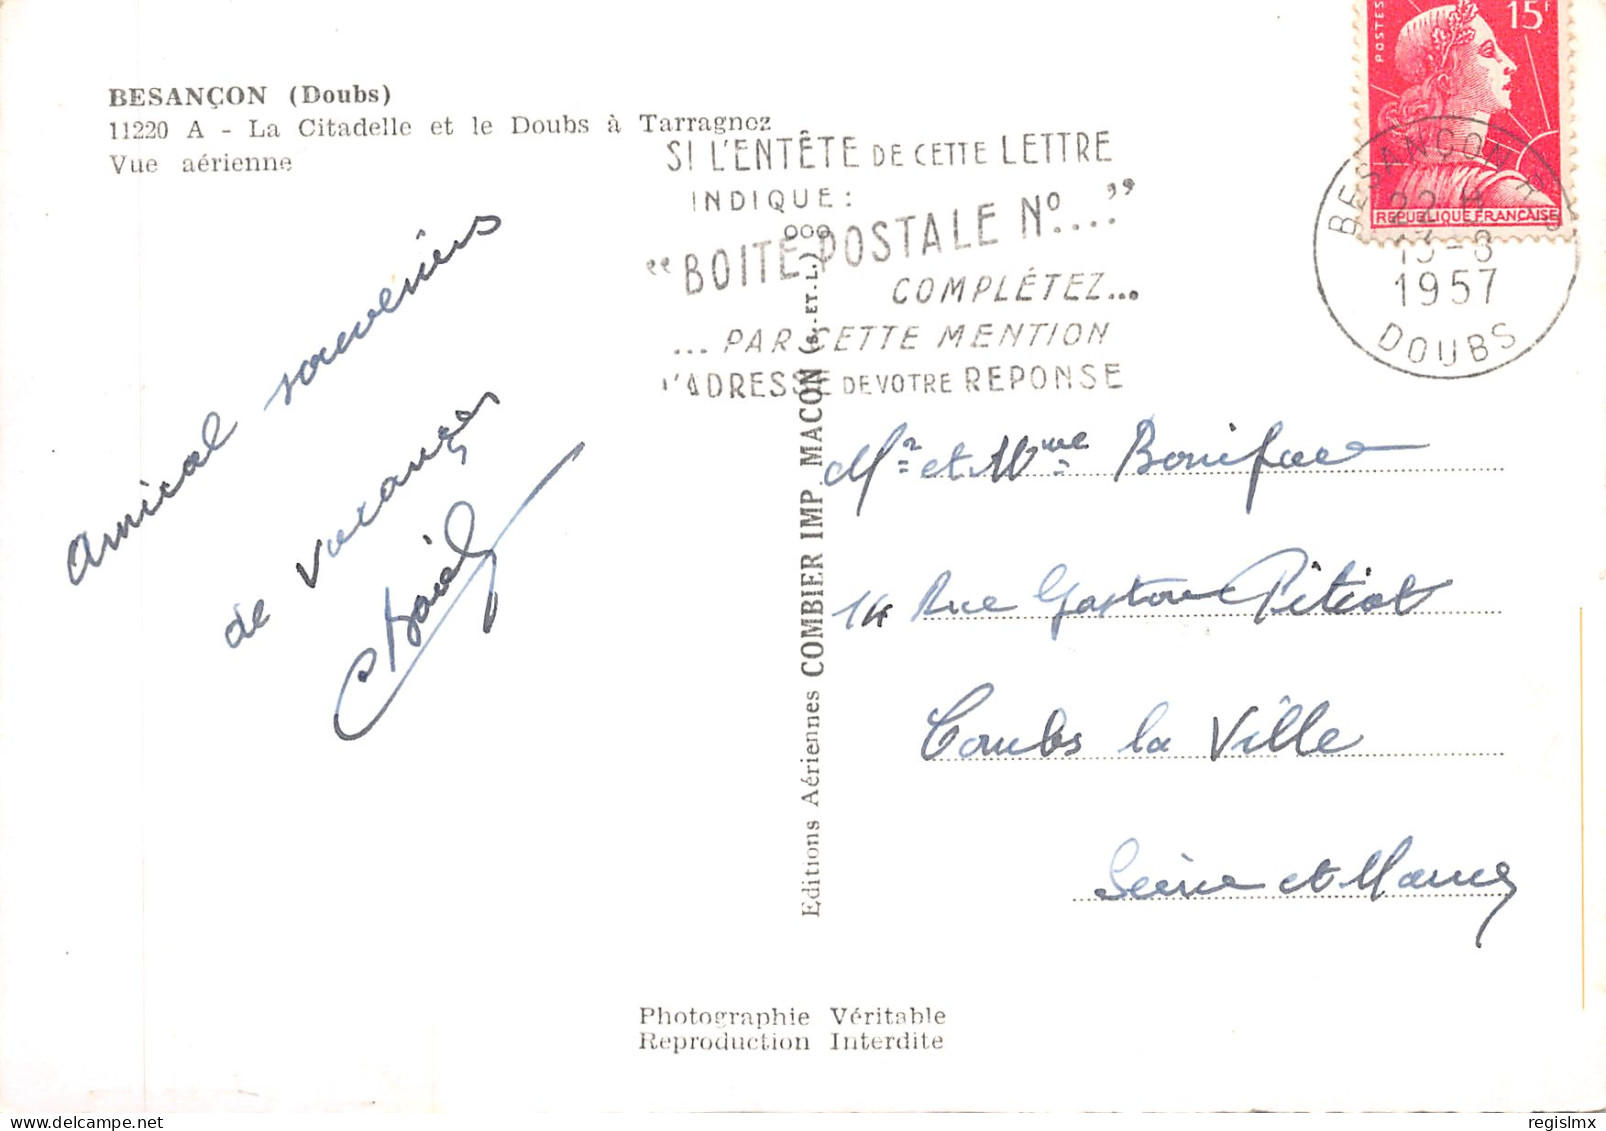 BESANÇON (Doubs)
11220 A - La Citadelle et le Doubs à Tarragnoz
Vue aérienne
POSTES
15F
REPUBLIQUE FRANÇAISE
SI L'ENTÊTE DE CETTE LETTRE
INDIQUE :
"BOITE POSTALE Nº..."
COMPLÉTEZ...
...PAR CETTE MENTION
L'ADRESSE DE VOTRE REPONSE
BESANÇON
1957
DOUBS
Amical souvenirs
de vacances
Editions Aériennes COMBIER IMP. MACON (S.-ET-L.)
Mr et Mme Boniface
14 Rue Gaston Pitiot
Combs la Ville
Seine et Marne
Photographie Véritable
Reproduction Interdite
delcampe.net
regislmx